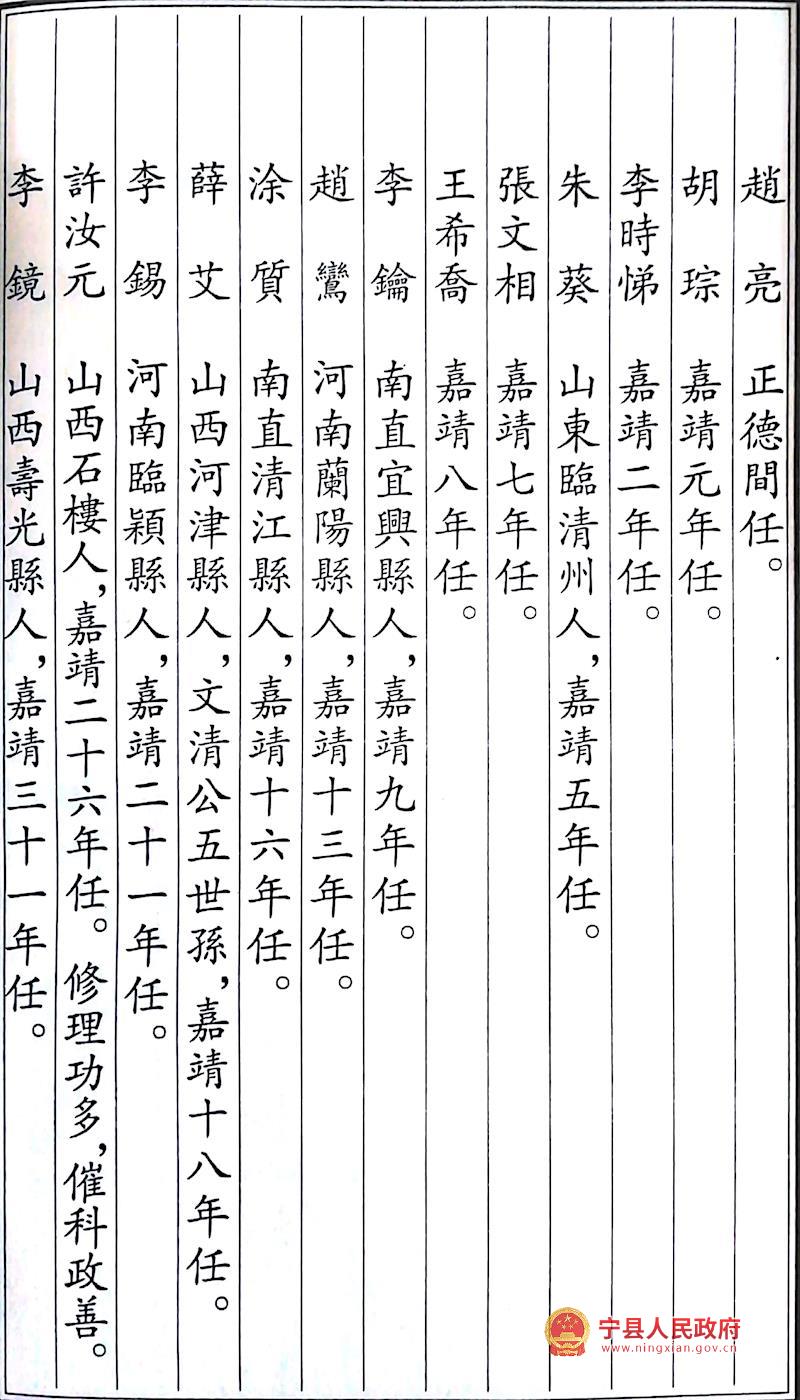 趙亮 正德間任。
胡琮 嘉靖元年任。
李時悌 嘉靖二年任。
朱葵 山東臨清州人，嘉靖五年任。
張文相 嘉靖七年任。
王希喬 嘉靖八年任。
李鑰 南直宜興縣人，嘉靖九年任。
趙鸞 河南蘭陽縣人，嘉靖十三年任。
涂質 南直清江縣人，嘉靖十六年任。
薛艾 山西河津縣人，文清公五世孫，嘉靖十八年任。
李錫 河南臨潁縣人，嘉靖二十一年任。
許汝元 山西石樓人，嘉靖二十六年任。修理功多，催科政善。
李鏡 山西壽光縣人，嘉靖三十一年任。
宁县人民政府
www.ningxian.gov.cn